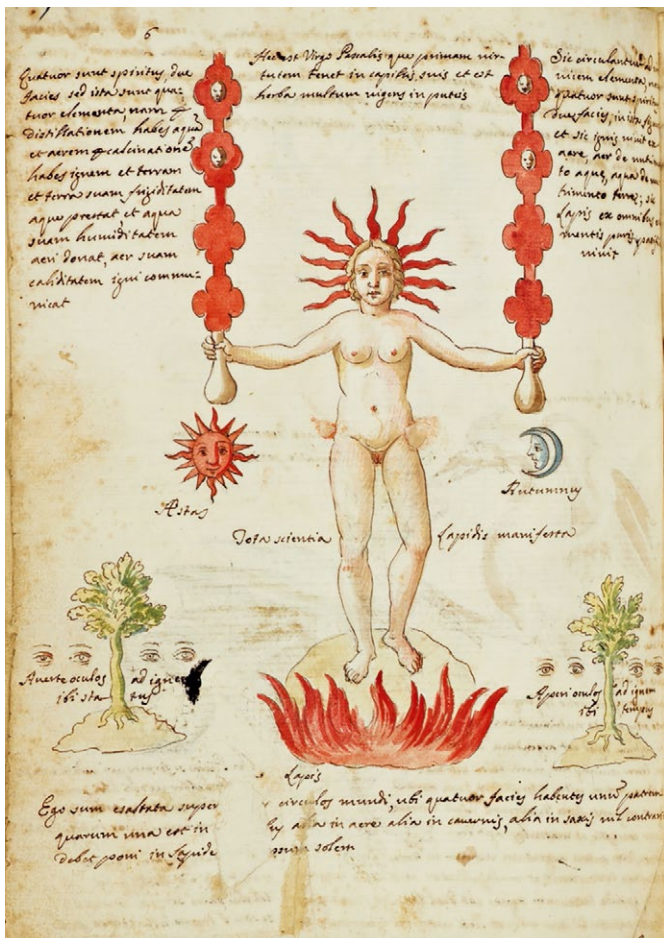 6
Quatuor sunt spiritus, due
facies sed ista sunt qua-
tuor elementa, nam p
distillationem habes aquã
et aerem p calcinationẽ
habes ignem et terram
et terra suam frigiditatem
aque prestat, et aqua
suam humiditatem
aeri donat, aer suam
caliditatem igni commu-
nicat
Hec est Virgo Pascalis que primam vir-
tutem tenet in capilis suis et est
herba multum vigens in puteis
Sic circulantur ad
vicem elementa,
quatuor sunt spiritus
due facies, in
et sic ignis vivit ex
aere, aer de nutrimen-
to aque, aqua de nu-
trimento terre; sic
Lapis ex omnibus
mentis puris
vivit
Æstas
Autumnus
Tota scientia Lapidis manifesta
Averte oculos ad ignem
ibi sta tus
Aperi oculos ad ignem
ibi tempus
Lapis
Ego sum exaltata super circulos mundi, ubi quatuor facies habentes unũ patrem
quarum una est in alia in aere alia in cavernis, alia in saxis vil
debet poni in solem